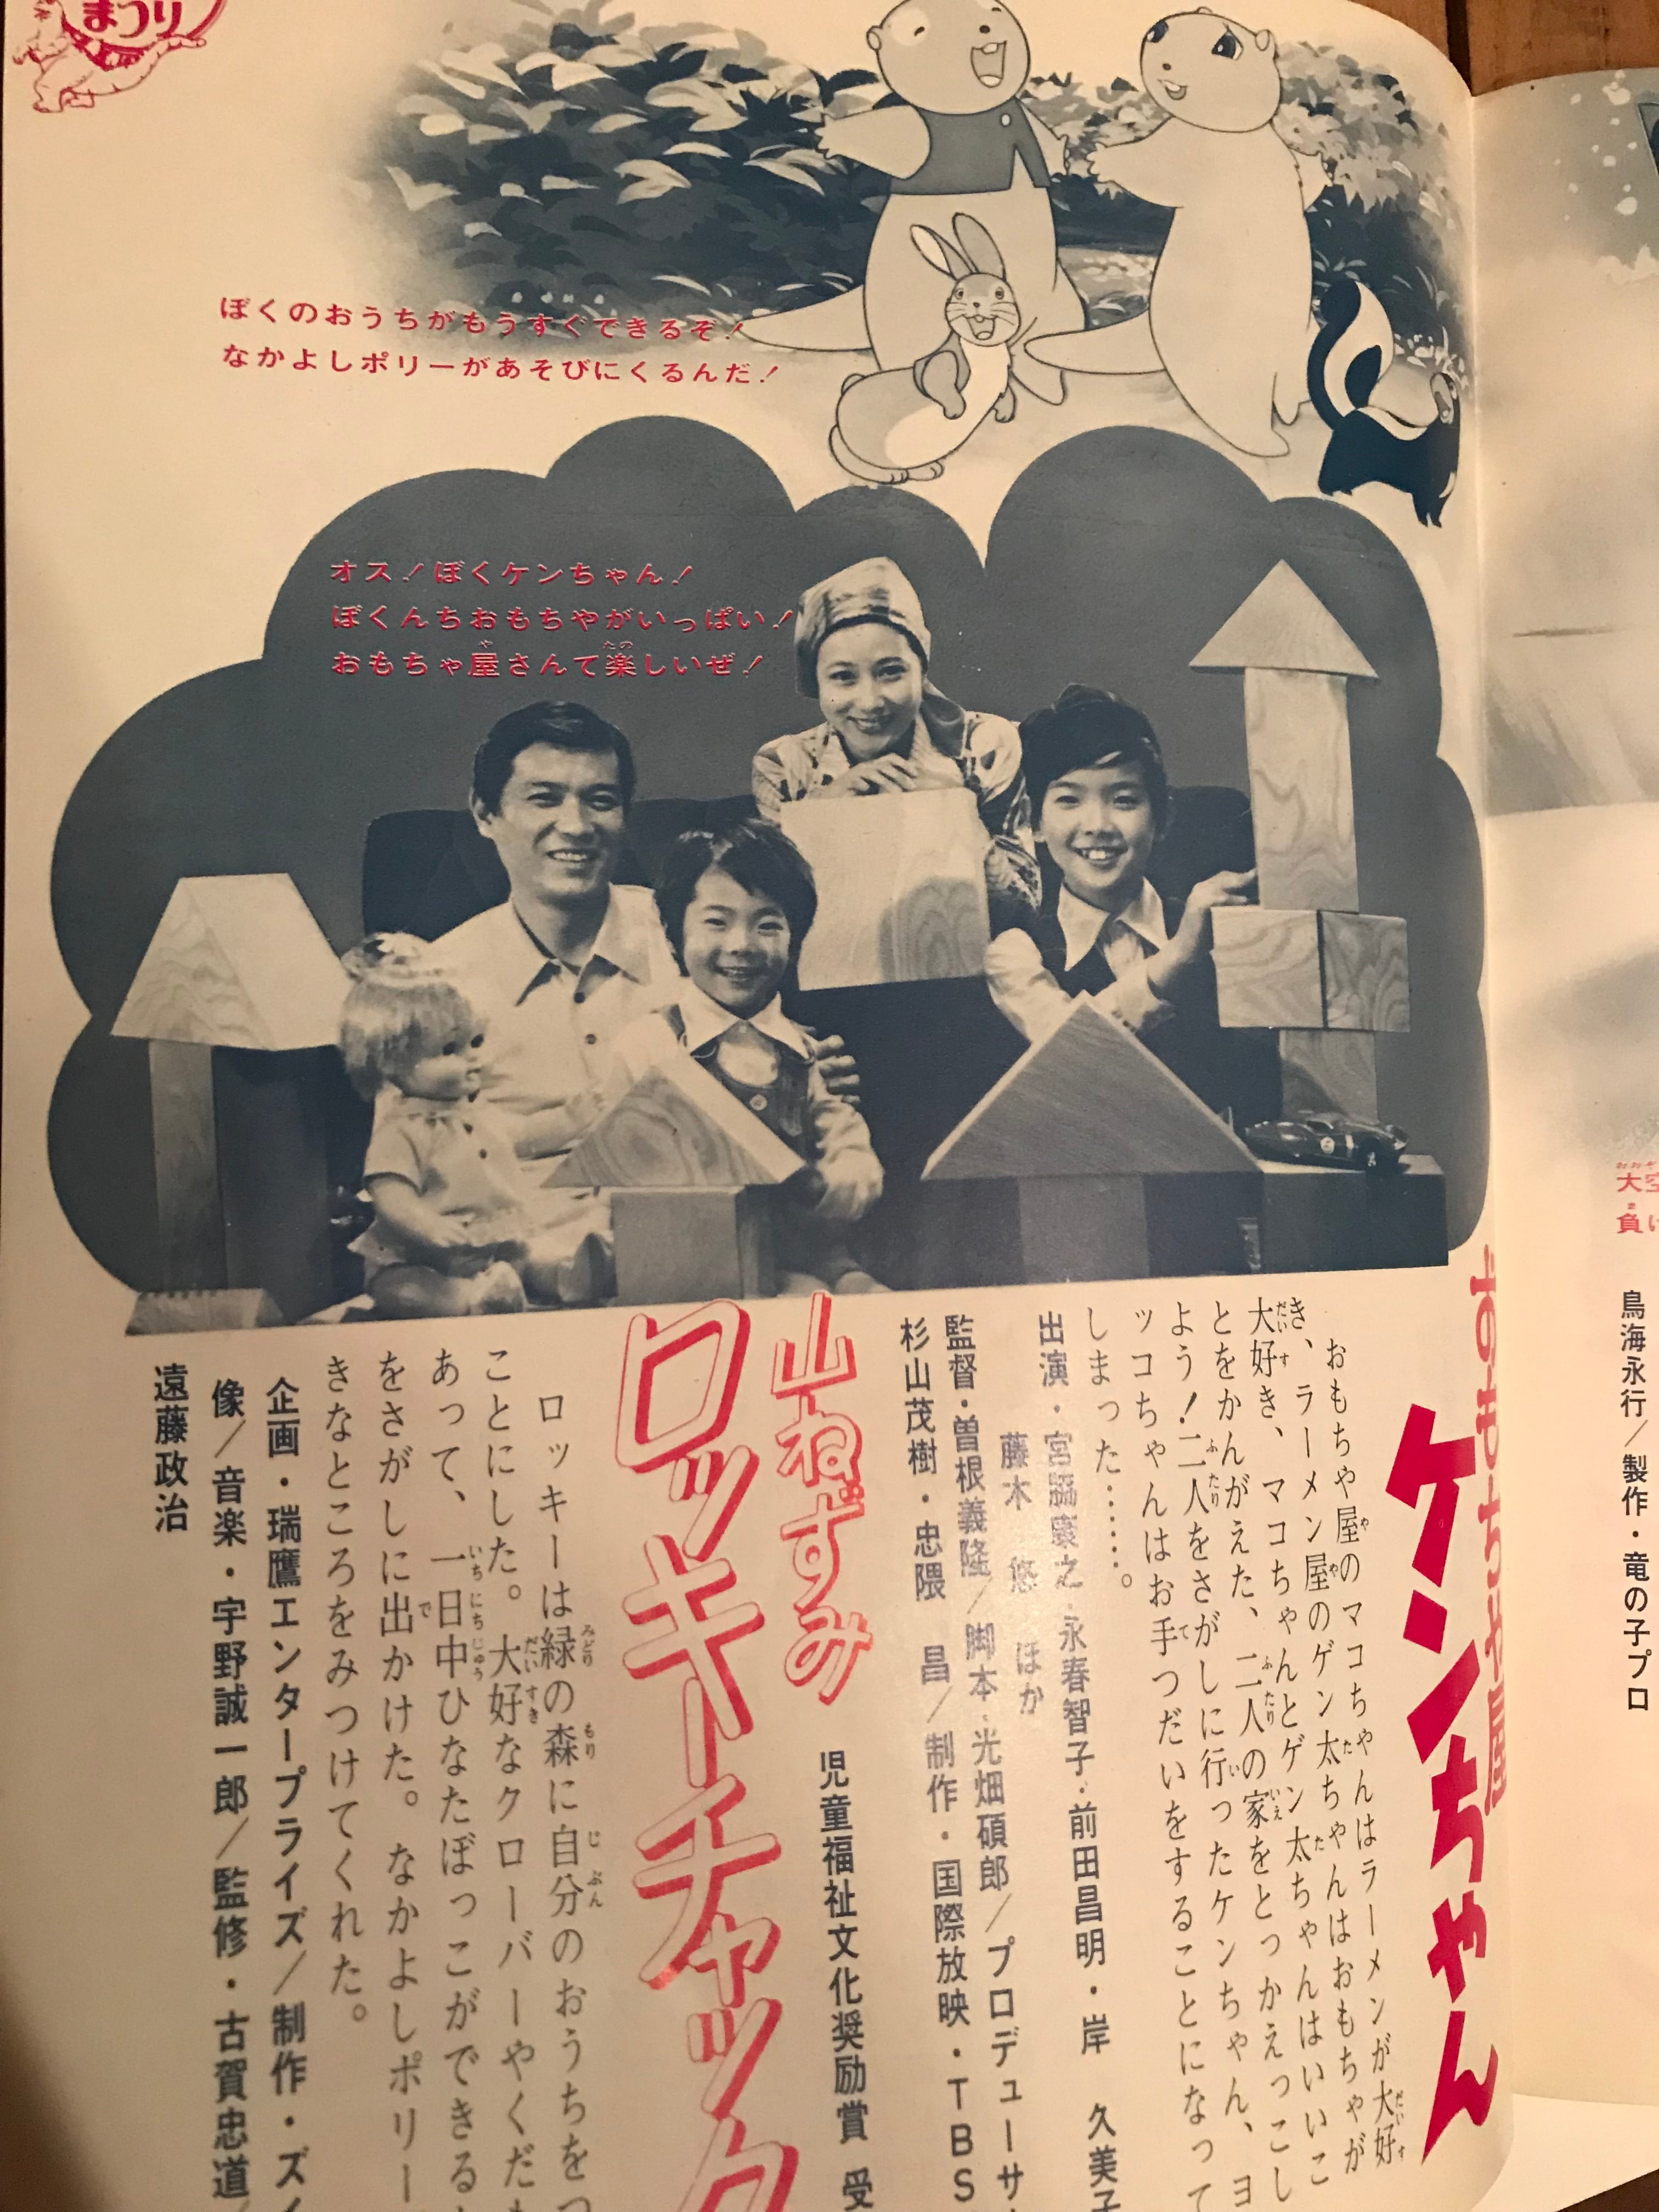 まつり
ぼくのおうちがもうすぐできるぞ！
なかよしポリーがあそびにくるんだ！
オス！ぼくケンちゃん！
ぼくんちおもちやがいっぱい！
おもちゃ屋さんて楽しいぜ！
おもちゃ屋
ケンちゃん
おもちゃ屋のマコちゃんはラーメンが大好
き、ラーメン屋のゲン太ちゃんはおもちゃが
大好き、マコちゃんとゲン太ちゃんはいいこ
とをかんがえた、二人の家をとっかえっこし
よう！二人をさがしに行ったケンちゃん、ヨ
ッコちゃんはお手つだいをすることになって
しまった……。
出演・宮脇康之・永春智子・前田昌明・岸 久美子
藤木 悠 ほか
監督・曽根義隆／脚本・光畑碩郎／プロデューサ
杉山茂樹・忠隈 昌／制作・国際放映・TBS
山ねずみ
ロッキーチャック
児童福祉文化奨励賞 受
ロッキーは緑の森に自分のおうちをつ
ことにした。大好なクローバーやくだ
あって、一日中ひなたぼっこができる
をさがしに出かけた。なかよしポリー
きなところをみつけてくれた。
企画・瑞鷹エンタープライズ／制作・ズイ
像／音楽・宇野誠一郎／監修・古賀忠道／
遠藤政治
大空
負け
鳥海永行／製作・竜の子プロ